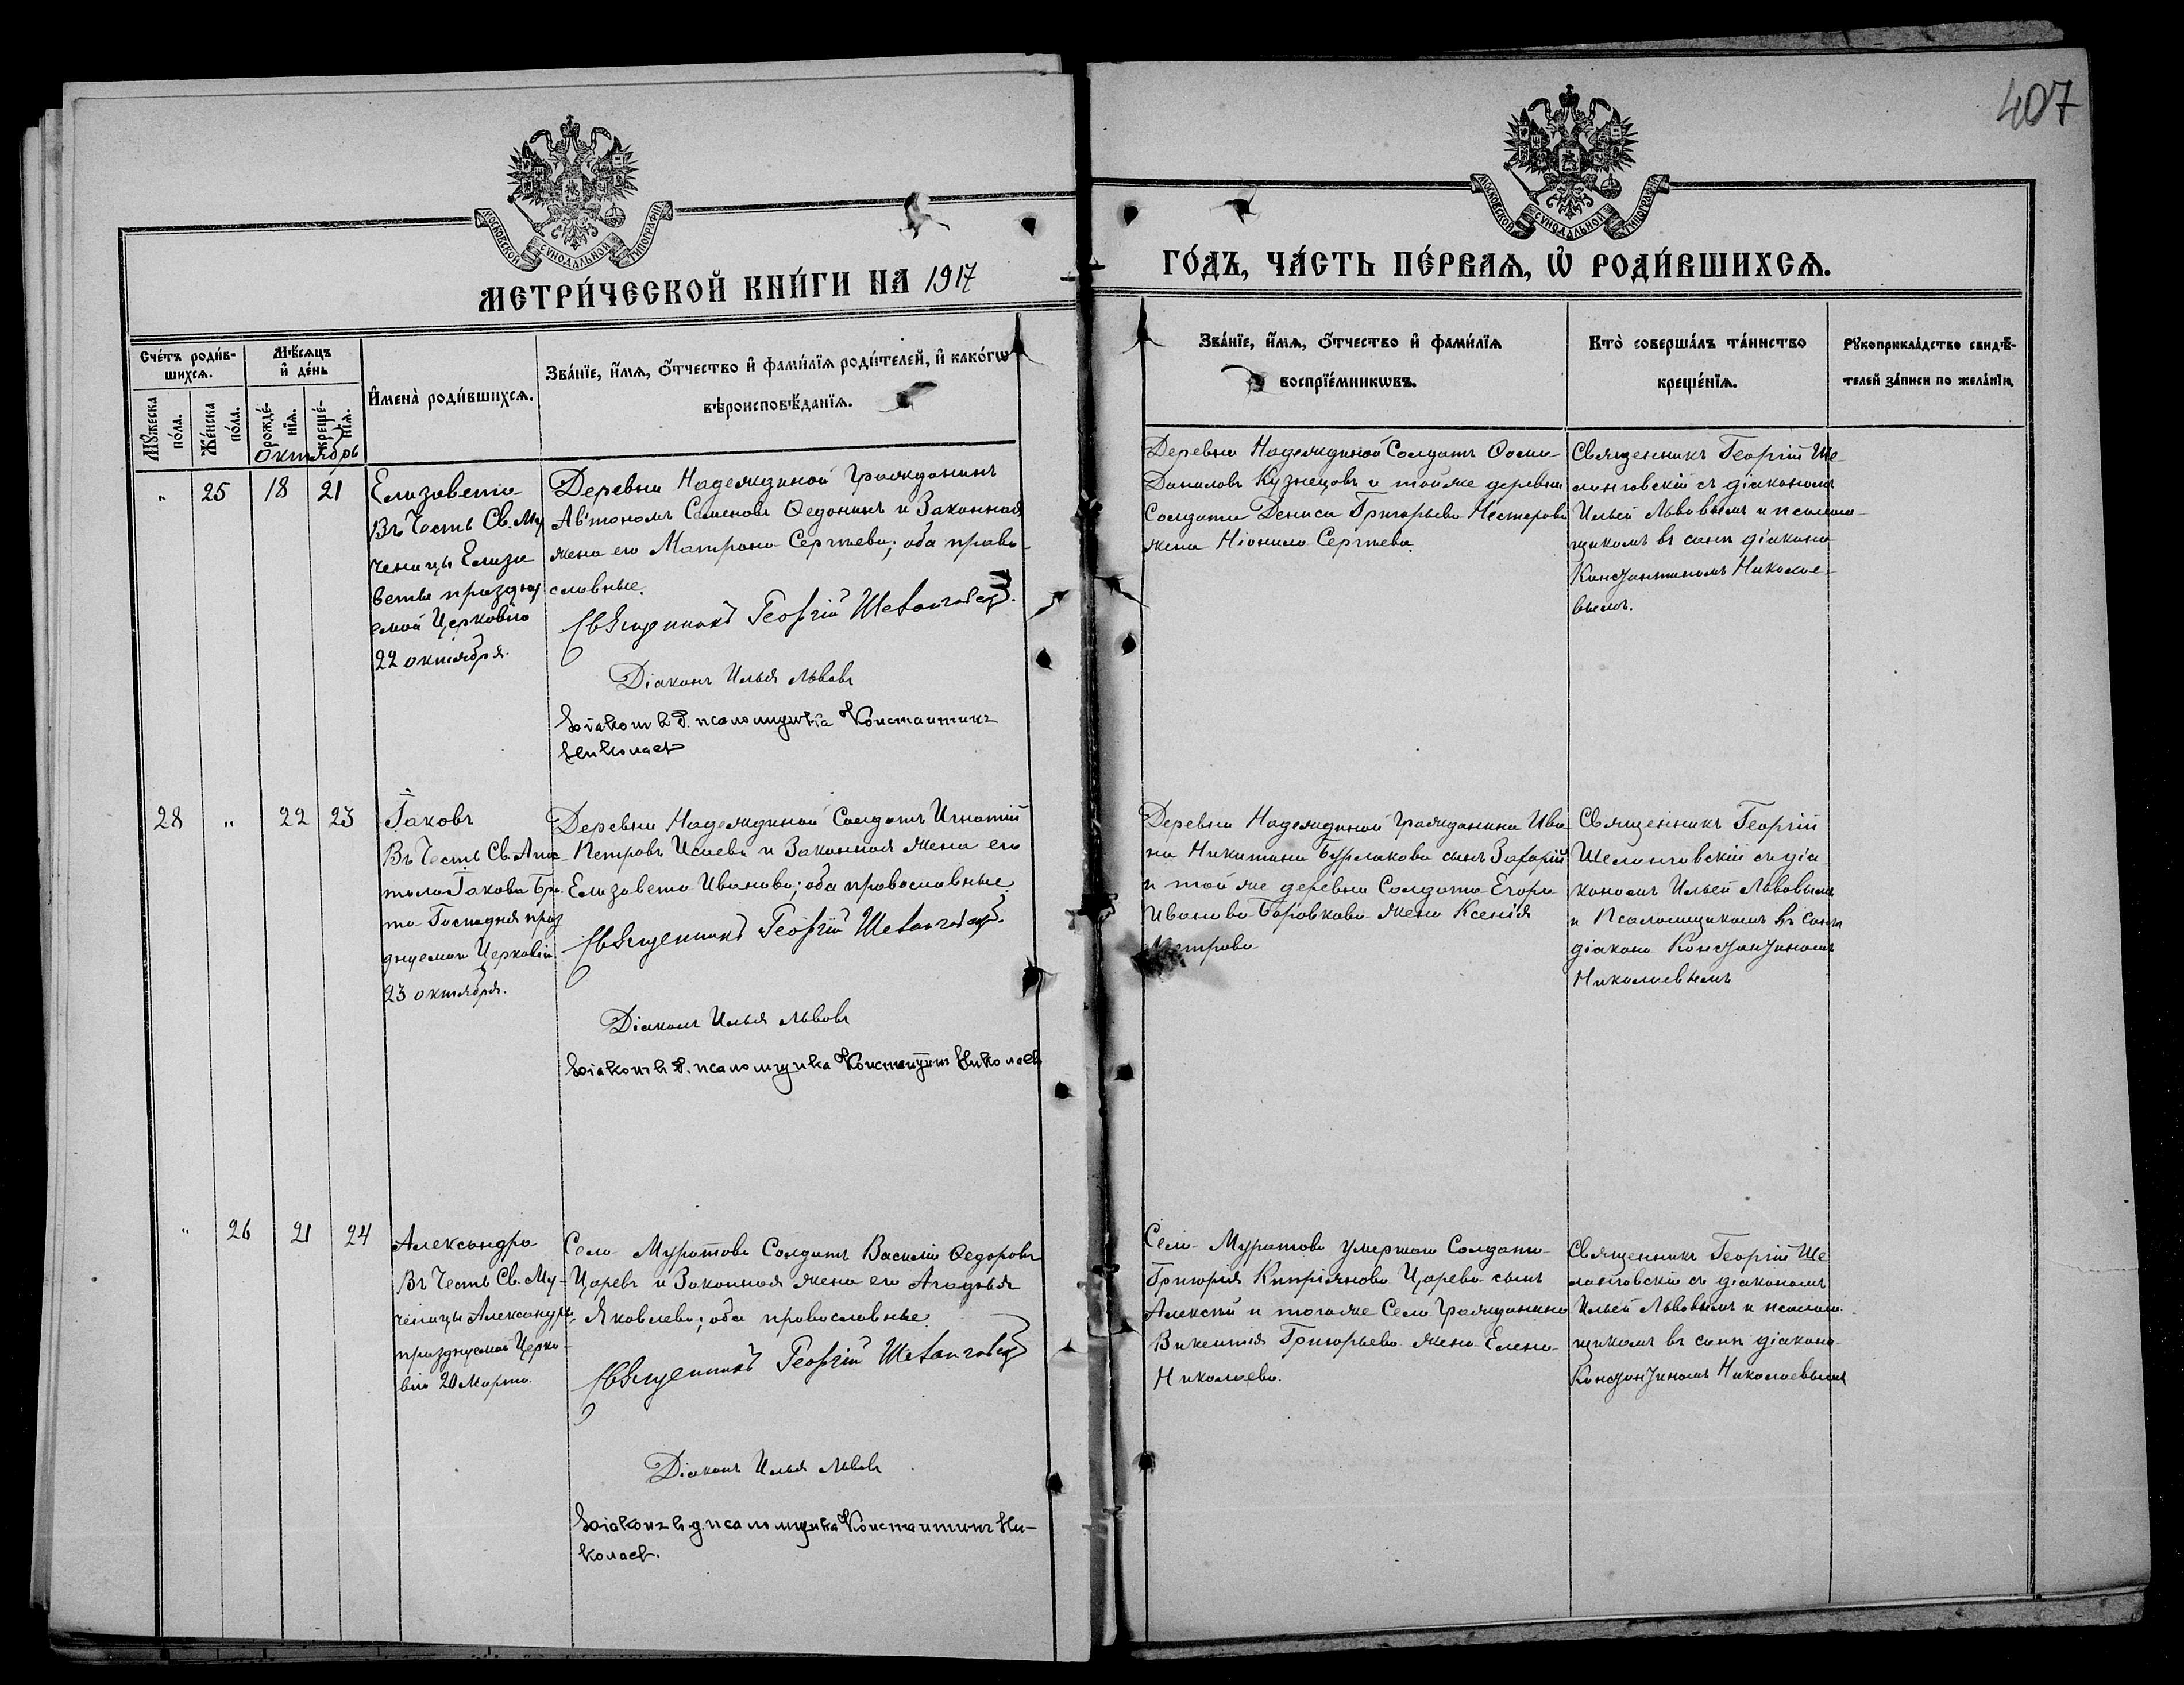 407
МОСКОВСКОЙ СУНОДАЛЬНОЙ ТИПОГРАФІИ
МОСКОВСКОЙ СУНОДАЛЬНОЙ ТИПОГРАФІИ
МЕТРИ́ЧЕСКОЙ КНИ́ГИ НА 1917
ГО́ДЪ, ЧА́СТЬ ПЕ́РВАѦ, Ѽ РОДИ́ВШИХСѦ.
Сче́тъ роди́в-
шихсѧ.
Мꙋ́жеска
по́ла.
Же́нска
по́ла.
Мѣ́сѧцъ
и҆ де́нь
рожде́-
нїѧ.
креще́-
нїѧ.
И҆мена̀ роди́вшихсѧ.
Зва́нїе, и҆́мѧ, ѻ҆́тчество и҆ фами́лїѧ роди́телей, и҆ како́гѡ
вѣроисповѣ́данїѧ.
Зва́нїе, и҆́мѧ, ѻ҆́тчество и҆ фами́лїѧ
воспрїе́мникѡвъ.
Кто̀ соверша́лъ та́инство
креще́нїѧ.
Рꙋкоприкла́дство свидѣ́-
телей за́писи по жела́нїю.
Октябрь
" 25 18 21
Елизавета
Въ Честь Св. Му
ченицы Елиза
веты праздну
емой Церковію
22 октября.
Деревни Надеждиной Гражданинъ
Автономъ Семеновъ Ѳедонинъ и Законная
жена его Матрона Сергѣева; оба право-
славные.
Священникъ Георгій
Діаконъ Илья Львовъ
Діаконъ в. д. псаломщика Константинъ
Николаевъ
Деревни Надеждиной Солдатъ Ѳома
Даниловъ Кузнецовъ и той же деревни
Солдата Дениса Григорьева Нестерова
жена Неонила Сергѣева.
Священникъ Георгій Ше-
ланговскій съ діакономъ
Ильей Львовымъ и псалом-
щикомъ въ санѣ діакона
Константиномъ Николае-
вымъ.
28 " 22 23
Іаковъ
Въ Честь Св. Апос-
тола Іакова Бра
та Господня праз
днуемаго Церковію
23 октября.
Деревни Надеждиной Солдатъ Игнатій
Петровъ Исаевъ и Законная жена его
Елизавета Иванова; оба православные.
Священникъ Георгій
Діаконъ Илья Львовъ
Діаконъ в. д. псаломщика Константинъ Николаевъ
Деревни Надеждиной Гражданина Ива
на Никитина Бурлакова сынъ Захарій
и той же деревни Солдата Егора
Иванова Боровкова жена Ксенія
Петрова
Священникъ Георгій
Шеланговскій съ діа
кономъ Ильей Львовымъ
и Псаломщикомъ въ санѣ
діакона Константиномъ
Николаевымъ
" 26 21 24
Александра
Въ Честь Св. Му-
ченицы Александры
празднуемой Церко-
вію 20 Марта.
Села Муратова Солдатъ Василій Ѳедоровъ
Царевъ и Законная жена его Агафья
Яковлева; оба православные.
Священникъ Георгій
Діаконъ Илья Львовъ
Діаконъ в. д. псаломщика Константинъ Ни-
колаевъ.
Села Муратова умершаго Солдата
Григорія Кипріянова Царева сынъ
Алексѣй и того же Села Гражданина
Викентія Григорьева жена Елена
Николаева.
Священникъ Георгій Ше
ланговскій съ діакономъ
Ильей Львовымъ и псалом-
щикомъ въ санѣ діакона
Константиномъ Николаевымъ